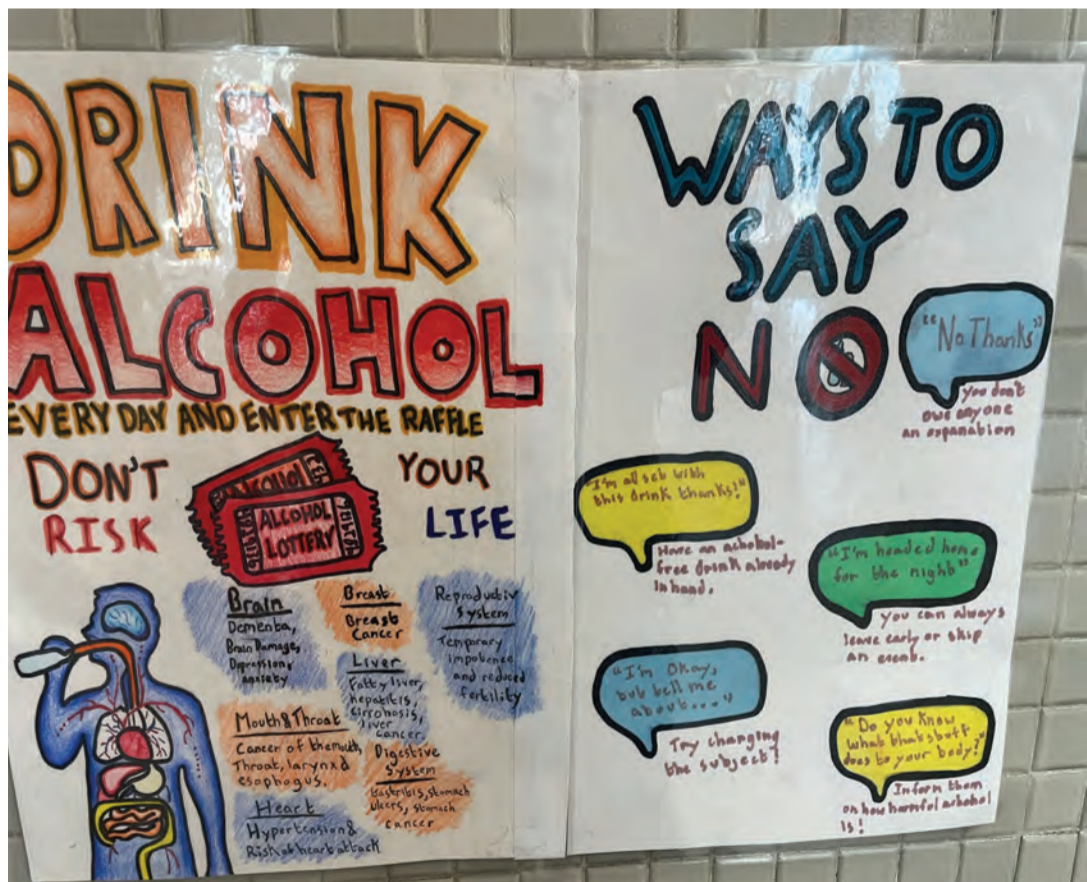 DRINK
ALCOHOL
EVERY DAY AND ENTER THE RAFFLE
DON'T
RISK
YOUR
LIFE
ALCOHOL
ALCOHOL
LOTTERY
Brain
Dementa,
Brain Damage,
Depression,
anxiety
Breast
Breast
Cancer
Reproductiv
System
Temporary
impotence
and reduced
fertility
Liver
Fatty liver,
hepatitis,
cirrohosis,
liver
cancer
Mouth & Throat
Cancer of the mouth,
Throat, larynxd
esophogus.
Digestive
System
Gastritis, stomach
ulcers, stomach
cancer
Heart
Hypertension &
Risk of heart attack
WAYS TO
SAY
NO
"No Thanks"
you don't
owe anyone
an expanation
"I'm all set with
this drink thanks!"
Have an achohol-
free drink already
in hand.
"I'm headed home
for the night"
you can always
leave early or skip
an event.
"I'm Okay,
but tell me
about...."
Try changing
the subject!
"Do you know
what that stuff
does to your body?"
Inform them
on how harmful achohol
is!